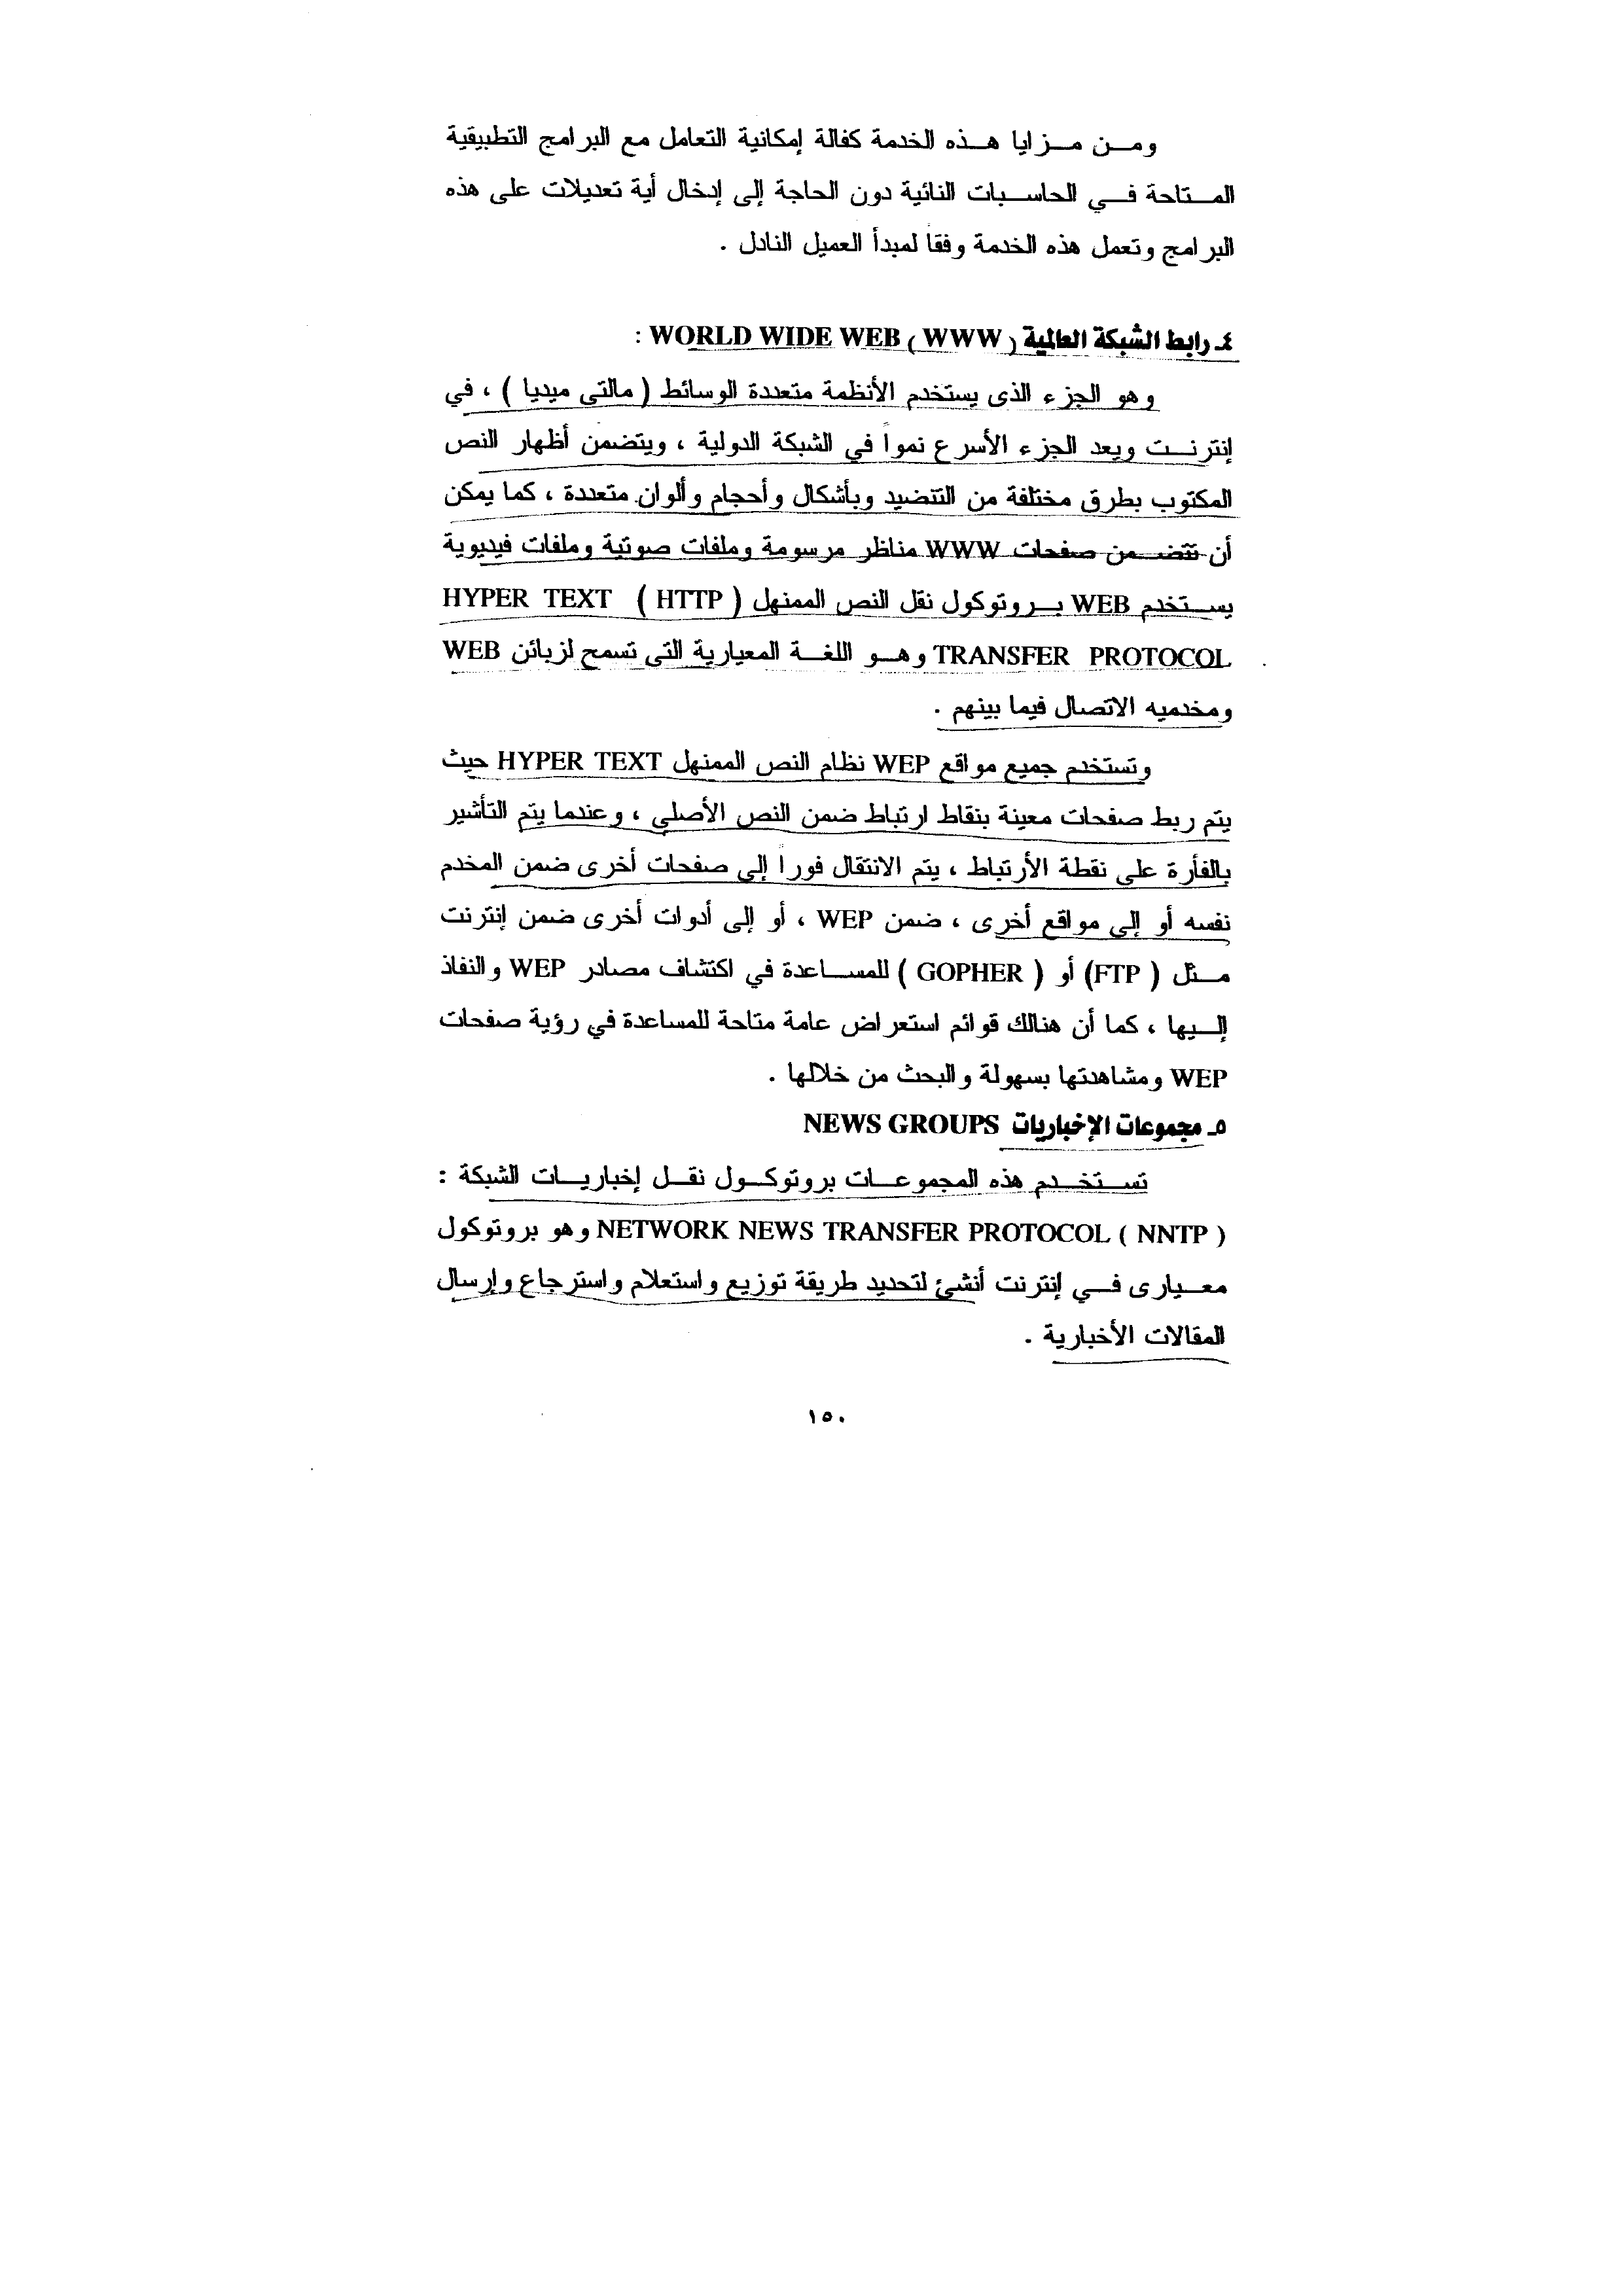 ومن مزايا هذه الخدمة كفالة إمكانية التعامل مع البرامج التطبيقية
المتاحة في الحاسبات النائية دون الحاجة إلى إدخال أية تعديلات على هذه
البرامج وتعمل هذه الخدمة وفقاً لمبدأ العميل النادل .
٤ـ رابط الشبكة العالمية ( WWW ) WORLD WIDE WEB :
وهو الجزء الذى يستخدم الأنظمة متعددة الوسائط ( مالتى ميديا ) ، في
إنترنت ويعد الجزء الأسرع نمواً في الشبكة الدولية ، ويتضمن أظهار النص
المكتوب بطرق مختلفة من التنضيد وبأشكال وأحجام وألوان متعددة ، كما يمكن
أن تتضمن صفحات WWW مناظر مرسومة وملفات صوتية وملفات فيديوية
يستخدم WEB بروتوكول نقل النص الممنهل ( HTTP ) HYPER TEXT
TRANSFER PROTOCOL وهو اللغة المعيارية التى تسمح لزبائن WEB
ومخدميه الاتصال فيما بينهم .
وتستخدم جميع مواقع WEP نظام النص الممنهل HYPER TEXT حيث
يتم ربط صفحات معينة بنقاط ارتباط ضمن النص الأصلي ، وعندما يتم التأشير
بالفأرة على نقطة الأرتباط ، يتم الانتقال فوراً إلى صفحات أخرى ضمن المخدم
نفسه أو إلى مواقع أخرى ، ضمن WEP ، أو إلى أدوات أخرى ضمن إنترنت
مثل ( FTP) أو ( GOPHER ) للمساعدة في اكتشاف مصادر WEP والنفاذ
إليها ، كما أن هنالك قوائم استعراض عامة متاحة للمساعدة في رؤية صفحات
WEP ومشاهدتها بسهولة والبحث من خلالها .
٥ـ مجموعات الإخباريات NEWS GROUPS
تستخدم هذه المجموعات بروتوكول نقل إخباريات الشبكة :
NETWORK NEWS TRANSFER PROTOCOL ( NNTP ) وهو بروتوكول
معيارى في إنترنت أنشئ لتحديد طريقة توزيع واستعلام واسترجاع وإرسال
المقالات الأخبارية .
١٥٠